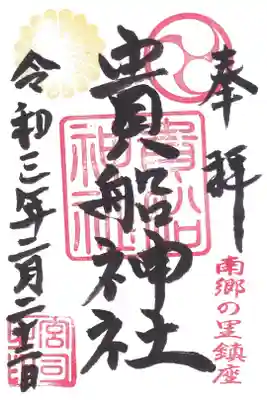 奉拝
南郷の里鎮座
貴船神社
貴船
神社
令和三年二月二十二日
宮司